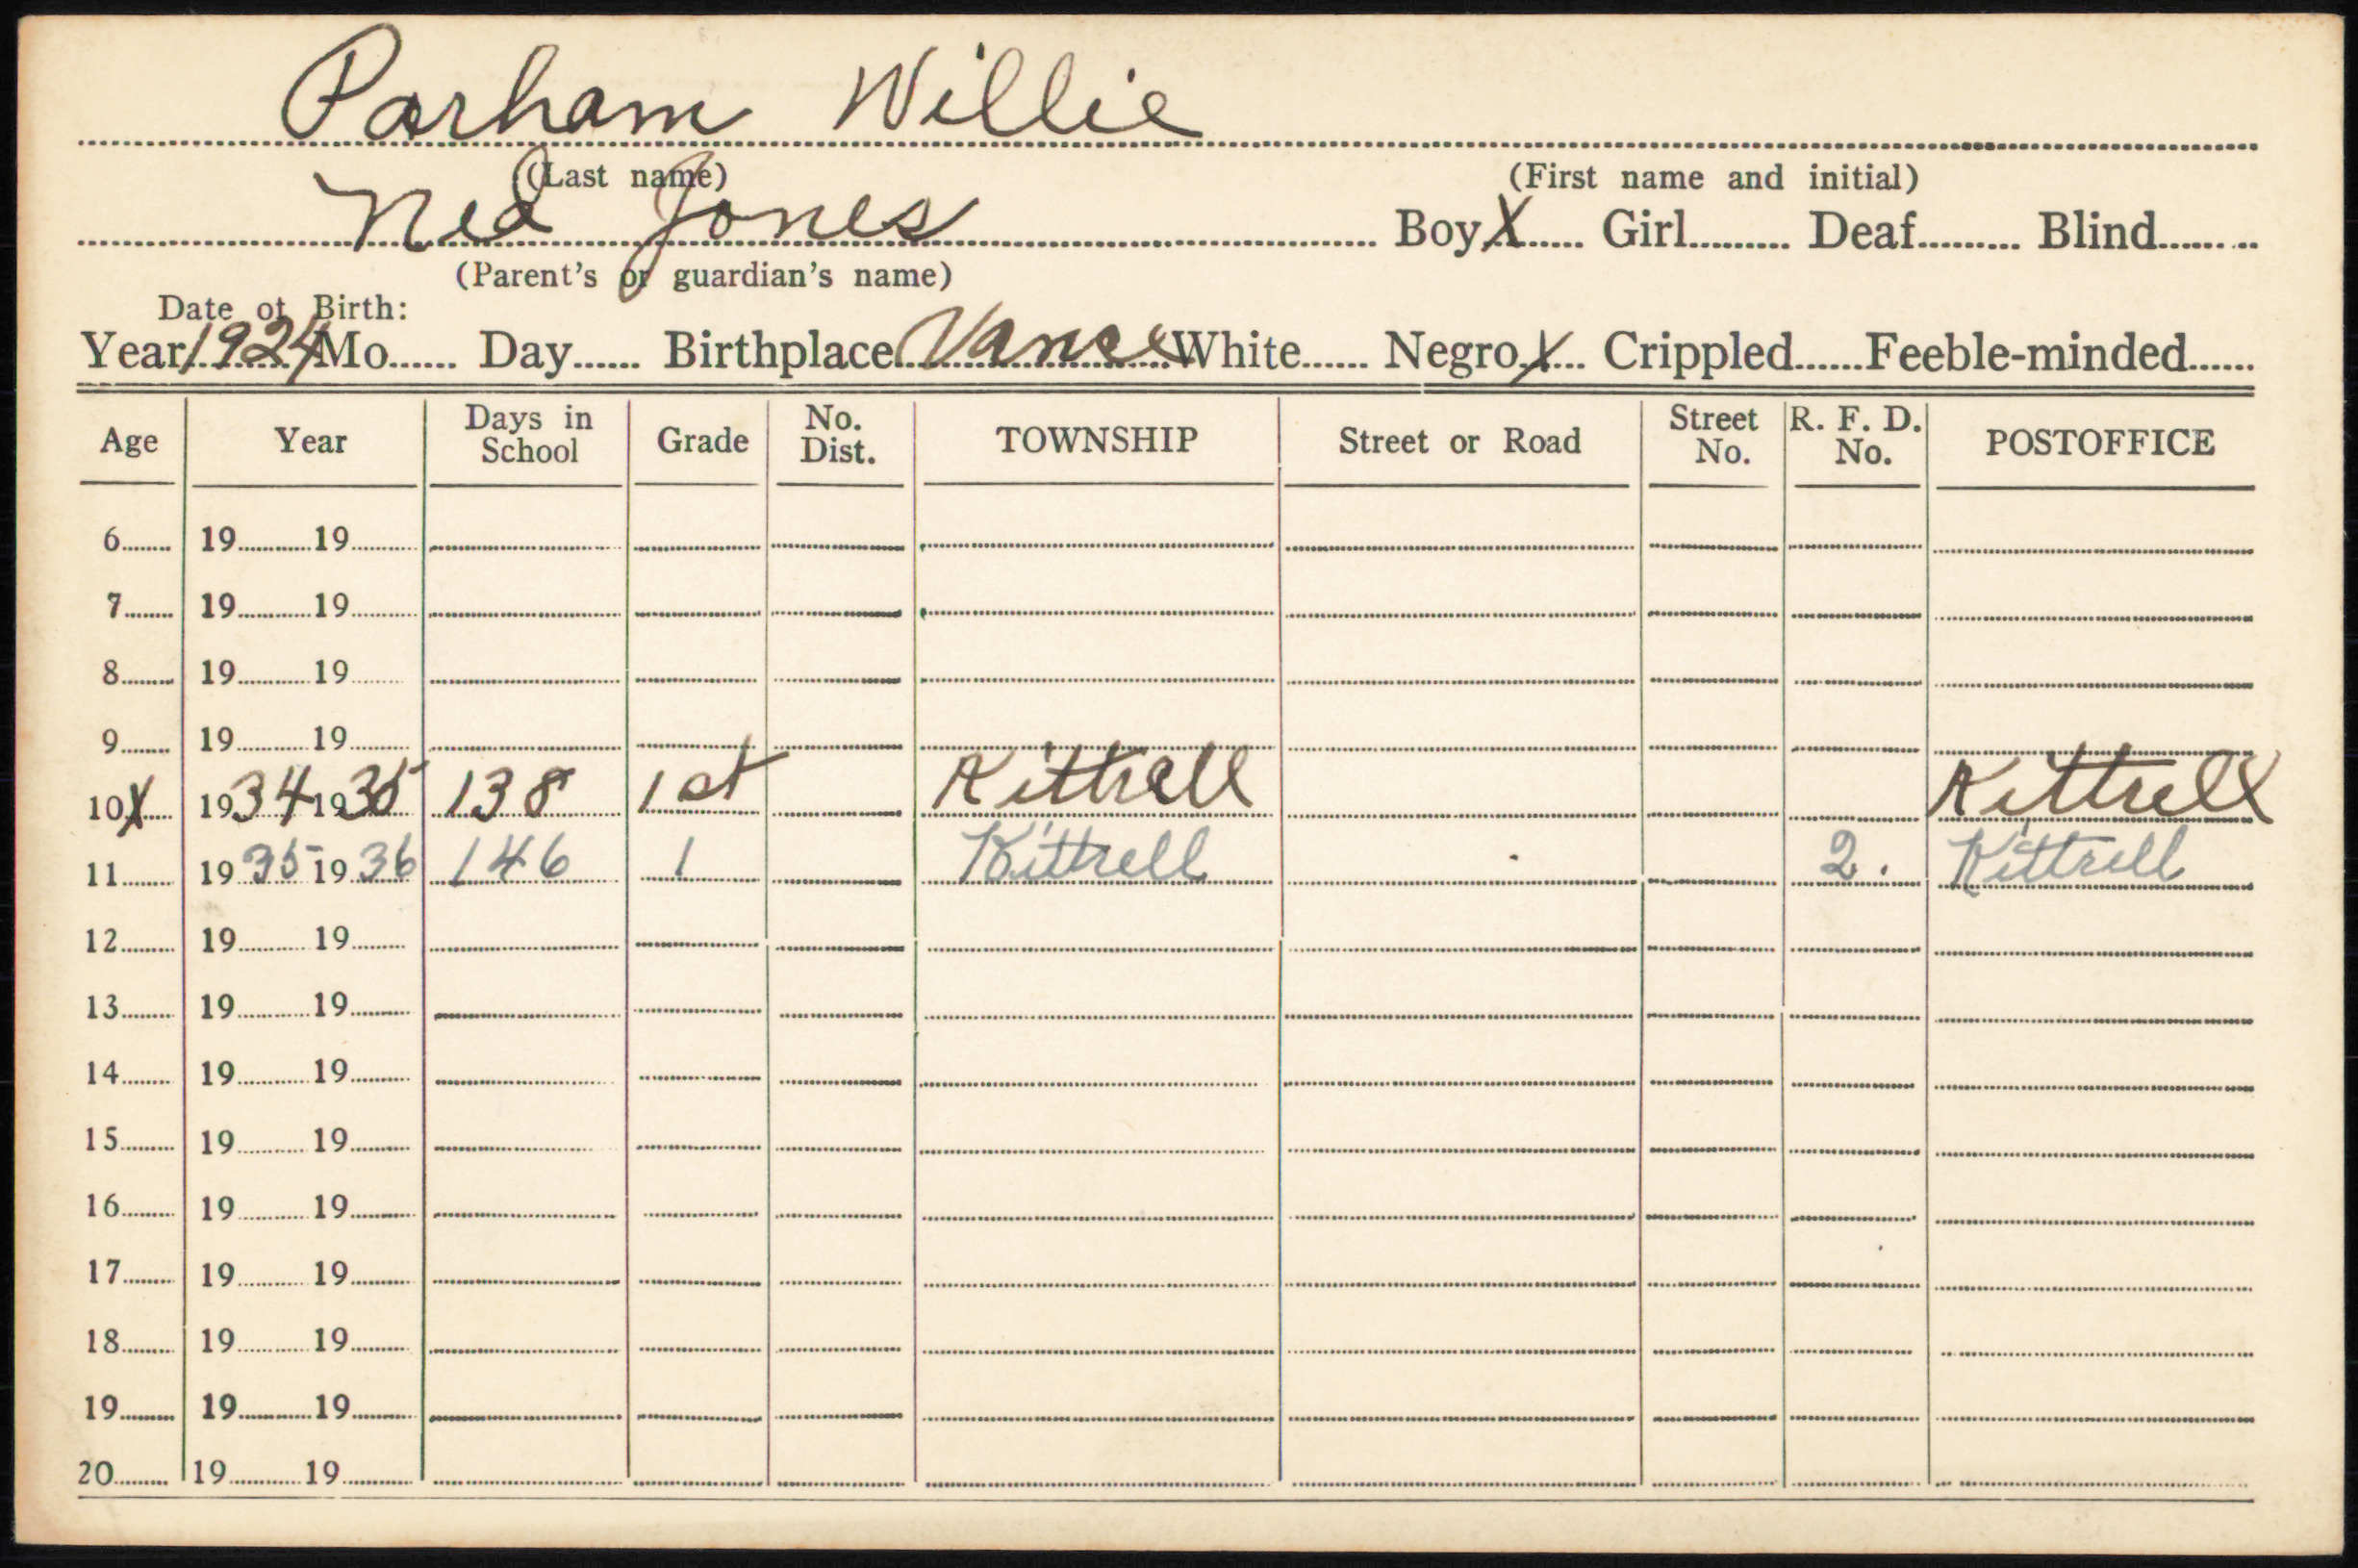 Parham Willie
(Last name) (First name and initial)
Ned Jones Boy X Girl Deaf Blind
(Parent's or guardian's name)
Date of Birth:
Year 1924 Mo. Day Birthplace Vance White Negro X Crippled Feeble-minded
Age Year Days in School Grade No. Dist. TOWNSHIP Street or Road Street No. R. F. D. No. POSTOFFICE
6 19 19
7 19 19
8 19 19
9 19 19
10 X 1934 1935 138 1st Kittrell Kittrell
11 1935 1936 146 1 Kittrell 2. Kittrell
12 19 19
13 19 19
14 19 19
15 19 19
16 19 19
17 19 19
18 19 19
19 19 19
20 19 19